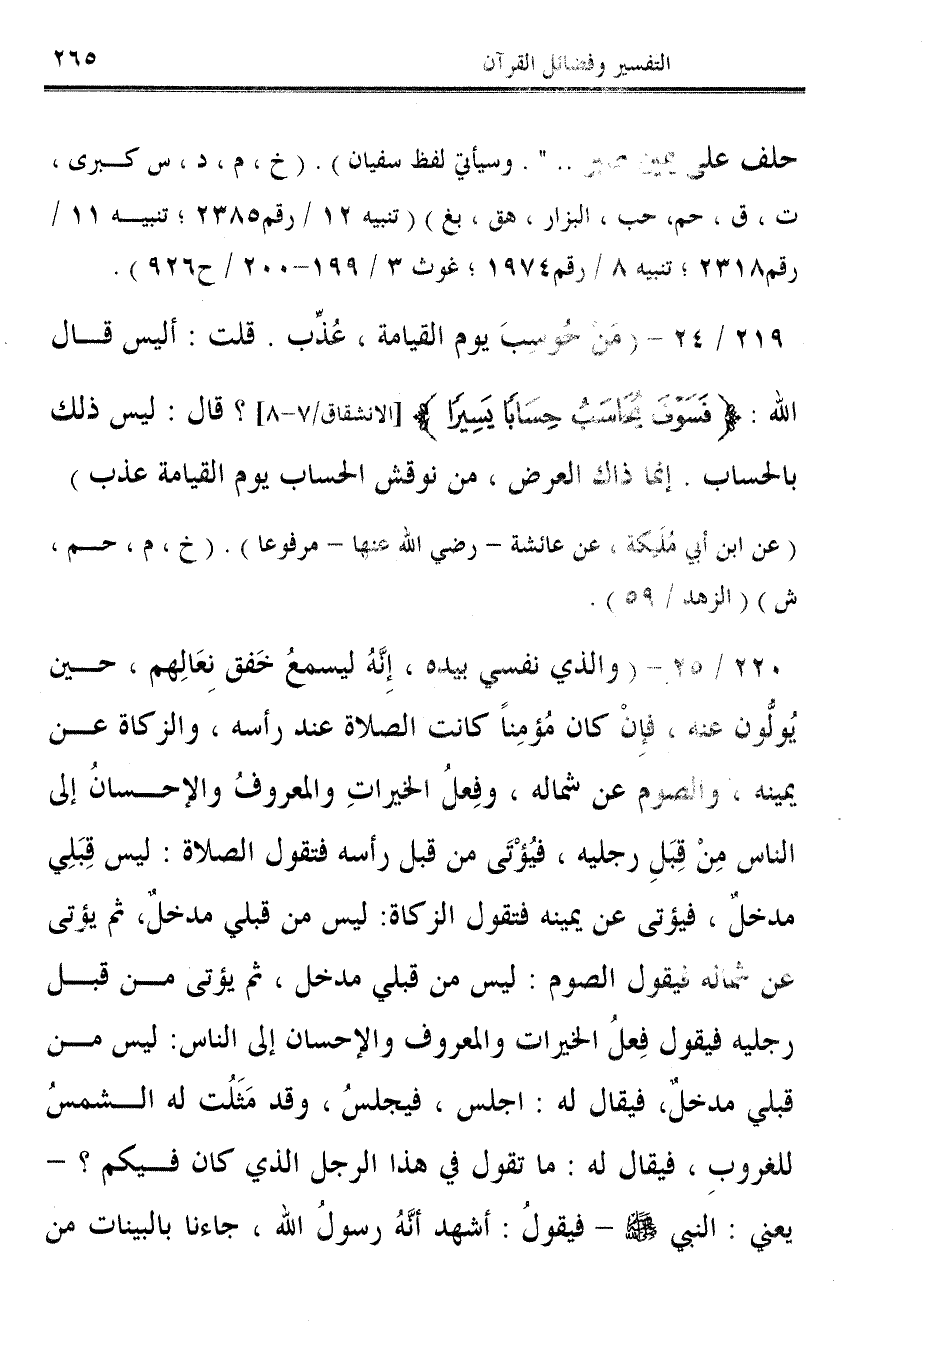 التفسير وفضائل القرآن ٢٦٥
حلف على يمين صبر .. " . وسيأتي لفظ سفيان ) . ( خ ، م ، د ، س كـبرى ،
ت ، ق ، حم، حب ، البزار ، هق ، بغ ) ( تنبيه ١٢ / رقم٢٣٨٥ ؛ تنبيـه ١١ /
رقم٢٣١٨ ؛ تنبيه ٨ / رقم١٩٧٤ ؛ غوث ٣ / ١٩٩-٢٠٠ / ح٩٢٦ ) .
٢١٩ / ٢٤ - ( مَنْ حُوسِبَ يوم القيامة ، عُذِّب . قلت : أليس قـال
الله : ﴿ فَسَوْفَ يُحَاسَبُ حِسَابًا يَسِيرًا ﴾ [الانشقاق/٧-٨] ؟ قال : ليس ذلك
بالحساب . إنما ذاك العرض ، من نوقش الحساب يوم القيامة عذب )
( عن ابن أبي مُلَيكة ، عن عائشة - رضي الله عنها - مرفوعا ) . ( خ ، م ، حـم ،
ش ) ( الزهد / ٥٩ ) .
٢٢٠ / ٢٥ - ( والذي نفسي بيده ، إِنَّهُ ليسمعُ خَفق نِعَالِهم ، حـين
يُولُّون عنه ، فإِنْ كان مُؤمِناً كانت الصلاة عند رأسه ، والزكاة عـن
يمينه ، والصوم عن شماله ، وفِعلُ الخيراتِ والمعروفُ والإحـسانُ إلى
الناس مِنْ قِبَلِ رجليه ، فَيُؤْتَى من قبل رأسه فتقول الصلاة : ليس قِبَلِي
مدخلٌ ، فيؤتى عن يمينه فتقول الزكاة: ليس من قبلي مدخلٌ، ثم يؤتى
عن شماله فيقول الصوم : ليس من قبلي مدخل ، ثم يؤتى مـن قبـل
رجليه فيقول فِعلُ الخيرات والمعروف والإحسان إلى الناس: ليس مـن
قبلي مدخلٌ، فيقال له : اجلس ، فيجلسُ ، وقد مَثَلُت له الـشمسُ
للغروبِ ، فيقال له : ما تقول في هذا الرجل الذي كان فـيكم ؟ -
يعني : النبي ﷺ - فيقولُ : أشهد أنَّهُ رسولُ الله ، جاءنا بالبينات من